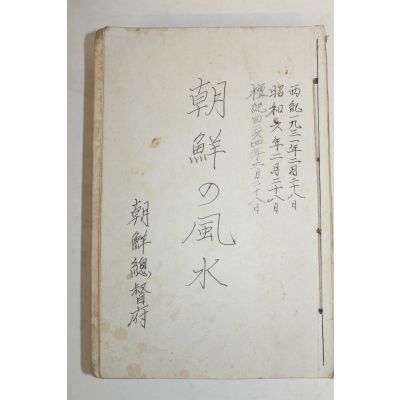 西紀一九三一年二月二十八日
昭和六年二月二十八日
檀紀四二六四年二月二十八日
朝鮮の風水
朝鮮總督府